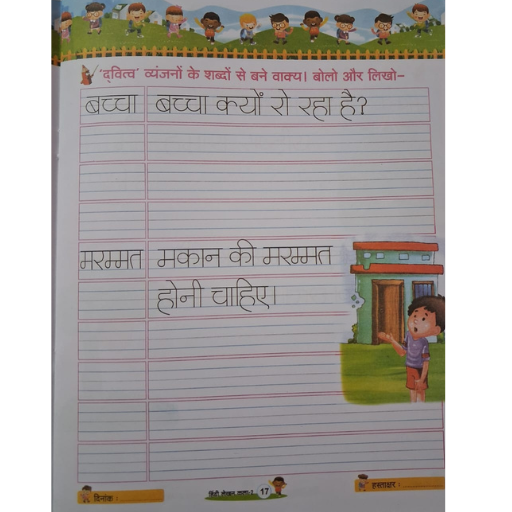 'द्वित्व' व्यंजनों के शब्दों से बने वाक्य। बोलो और लिखो–
बच्चा बच्चा क्यों रो रहा है?
मरम्मत मकान की मरम्मत
होनी चाहिए।
दिनांक :
17
हस्ताक्षर :